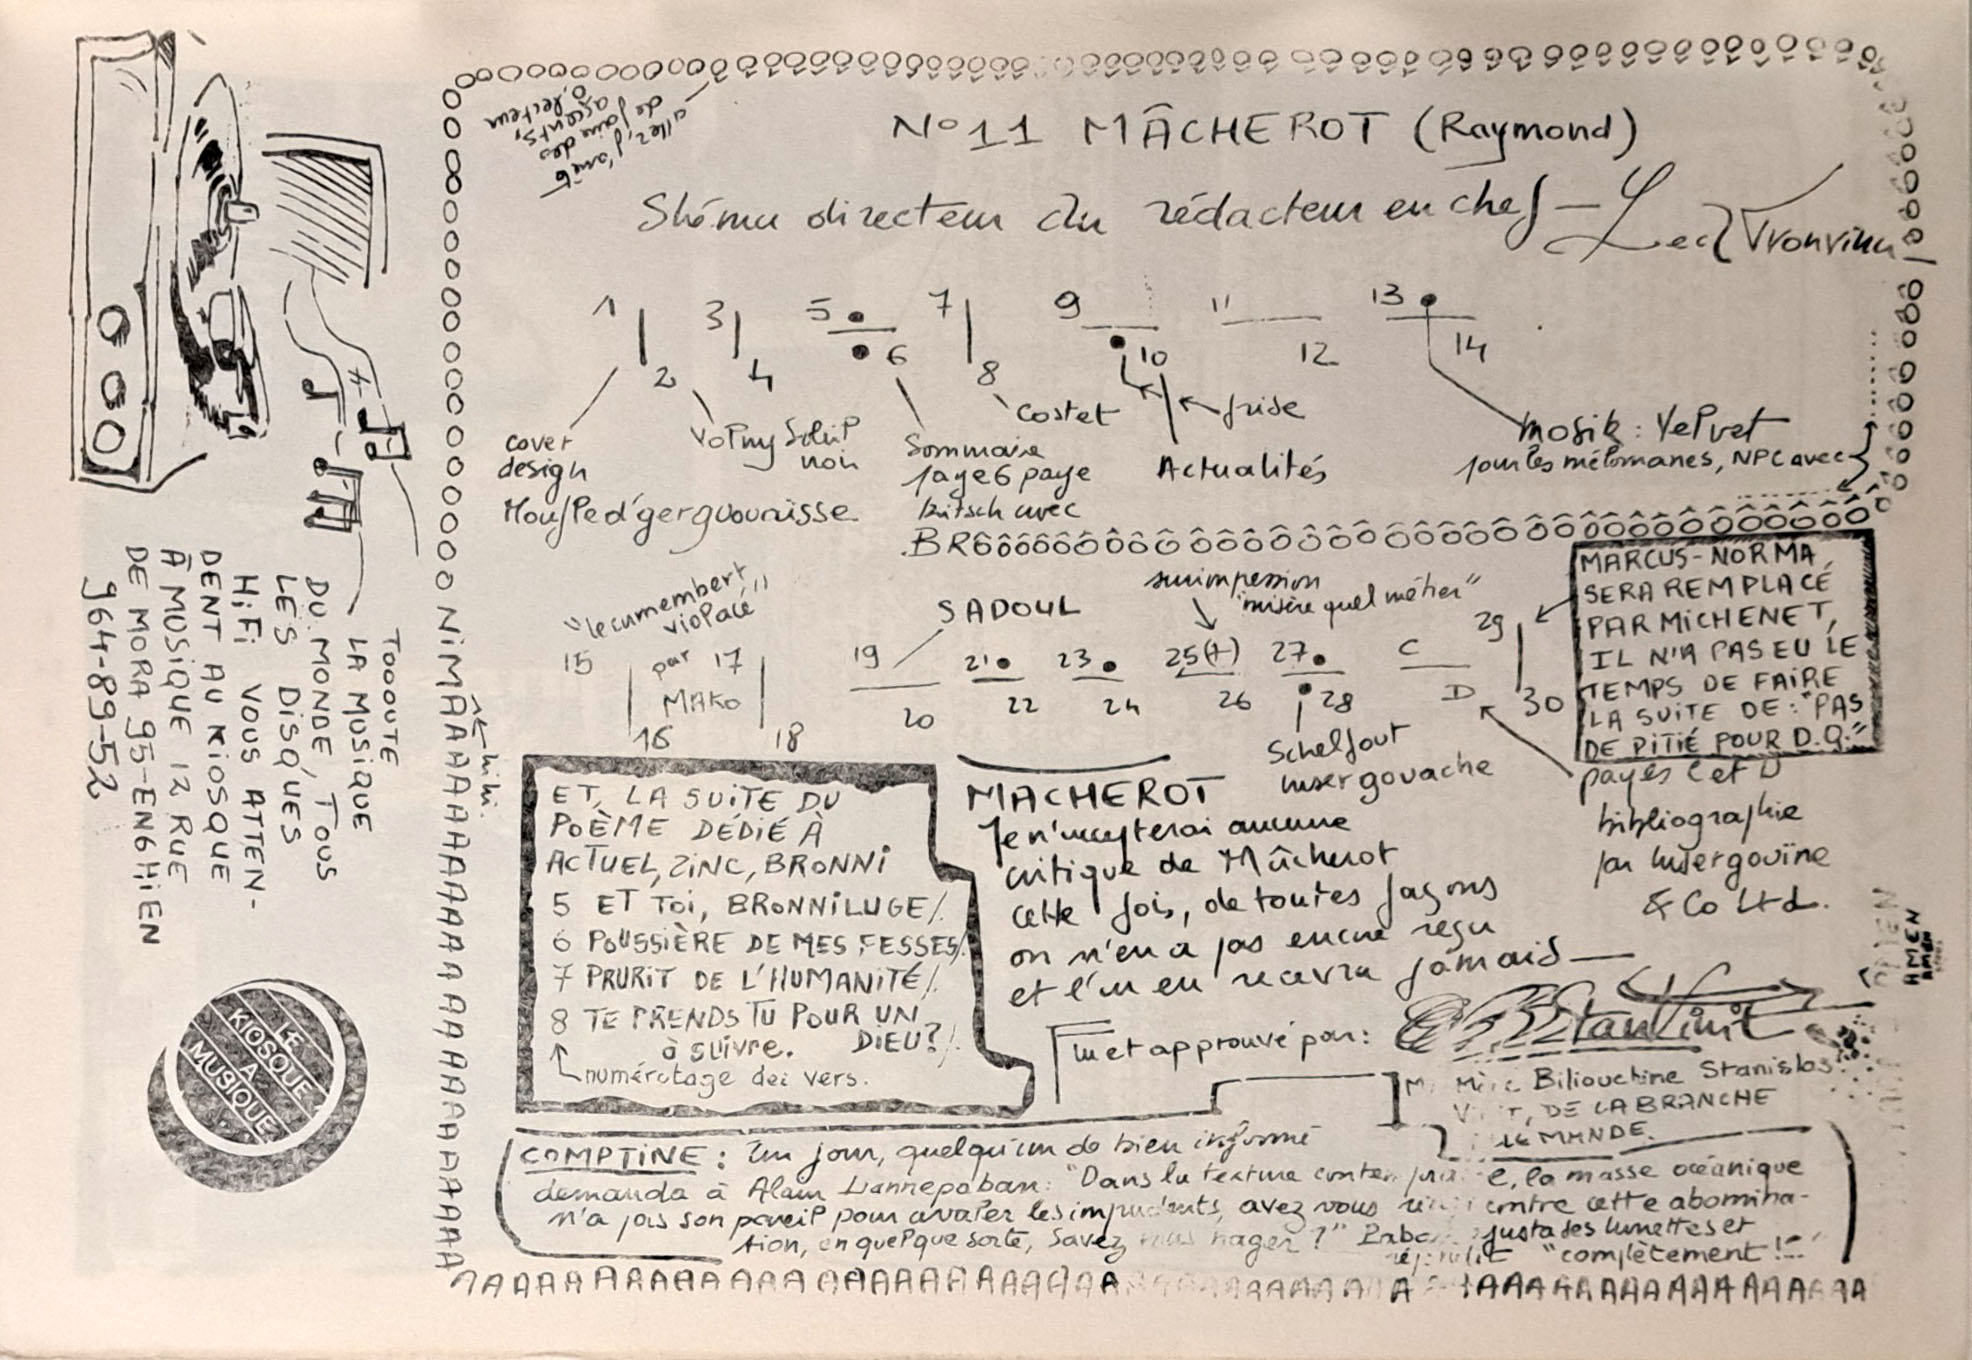 allez, j'arrête
de faire des
accents,
ô, lecteur
N°11 MÂCHEROT (Raymond)
Shému directeur du rédacteur en chef —
1 2 3 4 5 6 7 8 9 10 11 12 13 14
cover
design
Mousle d'
noir
Sommaire
page 6 page
kitsch avec
Costet
frise
Actualités
mosik : Velvet
pour les mélomanes, NPC avec
BRôôôôôôôôôôôôôôôôôôôôôôôôôôôôôôô
NIMÂAAAAAAAAAAAAAAAAAAAAA
hihi.
"le camembert
violacé"
par
MAKO
15 16 17 18
SADOUL
19 20 21 22 23 24 25(+) 26 27 28 C D 29 30
surimpression
"misère quel métier"
Schelfout
MARCUS-NORMA
SERA REMPLACÉ
PAR MICHENET,
IL N'A PAS EU LE
TEMPS DE FAIRE
LA SUITE DE: "PAS
DE PITIÉ POUR D.Q."
pages C et D
bibliographie
par
& Co Ltd.
ET, LA SUITE DU
POÈME DÉDIÉ À
ACTUEL, ZINC, BRONNI
5 ET TOI, BRONNILUGE/.
6 POUSSIÈRE DE MES FESSES/.
7 PRURIT DE L'HUMANITÉ/.
8 TE PRENDS TU POUR UN
DIEU?/.
à suivre.
numérotage des vers.
MACHEROT
Je n'accepterai aucune
critique de Mâcherot
cette fois, de toutes façons
on n'en a pas encore reçu
et l'on en recevra jamais —
Lu et approuvé par:
Biliouchine Stanislas
DE LA BRANCHE
AMEN
AMEN
AMEN
COMPTINE : Un jour, quelqu'un de bien informé
demanda à Alain : "Dans la texture , la masse océanique
n'a pas son pareil pour avaler les imprudents, avez vous contre cette abomina-
tion, en quelque sorte, Savez vous nager ?" ajusta ses lunettes et
répondit "complètement !"
AAAAAAAAAAAAAAAAAAAAAAAAAAAA
TOOOUTE
LA MUSIQUE
DU MONDE, TOUS
LES DISQUES
HiFi VOUS ATTEN-
DENT AU KIOSQUE
À MUSIQUE 12 RUE
DE MORA 95-ENGHIEN
964-89-52
LE
KIOSQUE
A
MUSIQUE